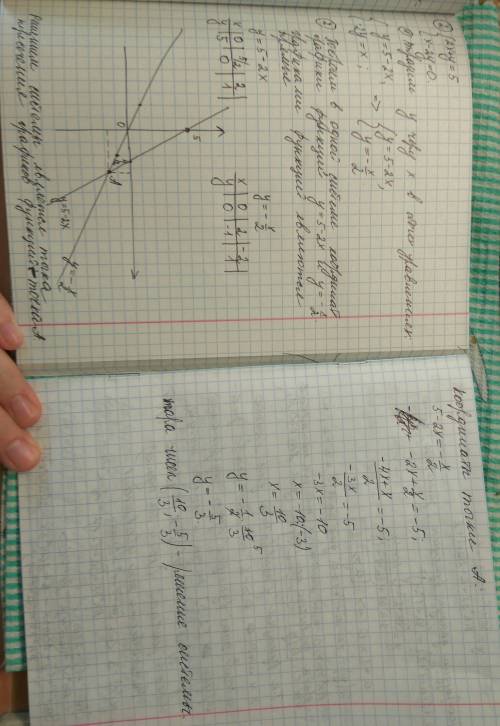 ② { 2x+y=5
x+2y=0
① Выразим y через x в обоих уравнениях
{ y=5-2x, => { y=5-2x,
2y=-x; y=-x/2
② Построим в одной системе координат
графики функций y=5-2x и y=-x/2
Графиками функций являются
прямые
y=5-2x
x | 0 | 5/2 | 2
y | 5 | 0 | 1
y=-x/2
x | 0 | 2 | -2
y | 0 | -1 | 1
5
0
A
y=5-2x
y=-x/2
Решением системы является точка
пересечения графиков функций - точка A
Координаты точки A:
5-2x=-x/2
-2x+x/2=-5;
(-4x+x)/2=-5;
-3x/2=-5
-3x=-10
x=-10:(-3)
x=10/3
y=-1/2·10/3
5
y=-5/3
пара чисел (10/3; -5/3) - решение системы.